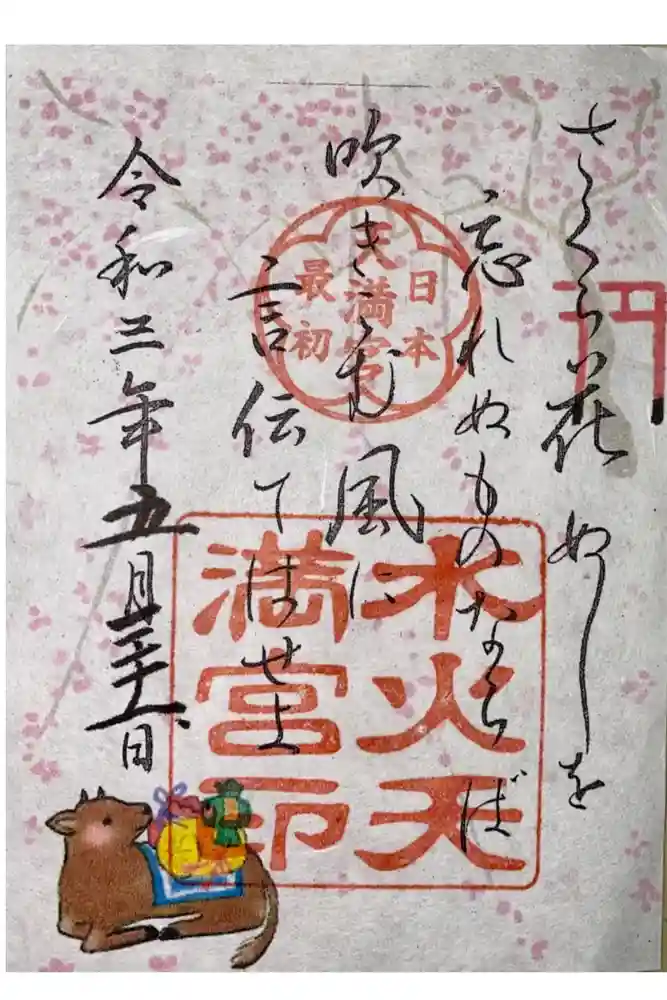 さくら花ぬしを
忘れぬものならば
吹きこむ風に
言伝てはせよ
令和三年五月 日
日本
最初
天満宮
水火天
満宮印